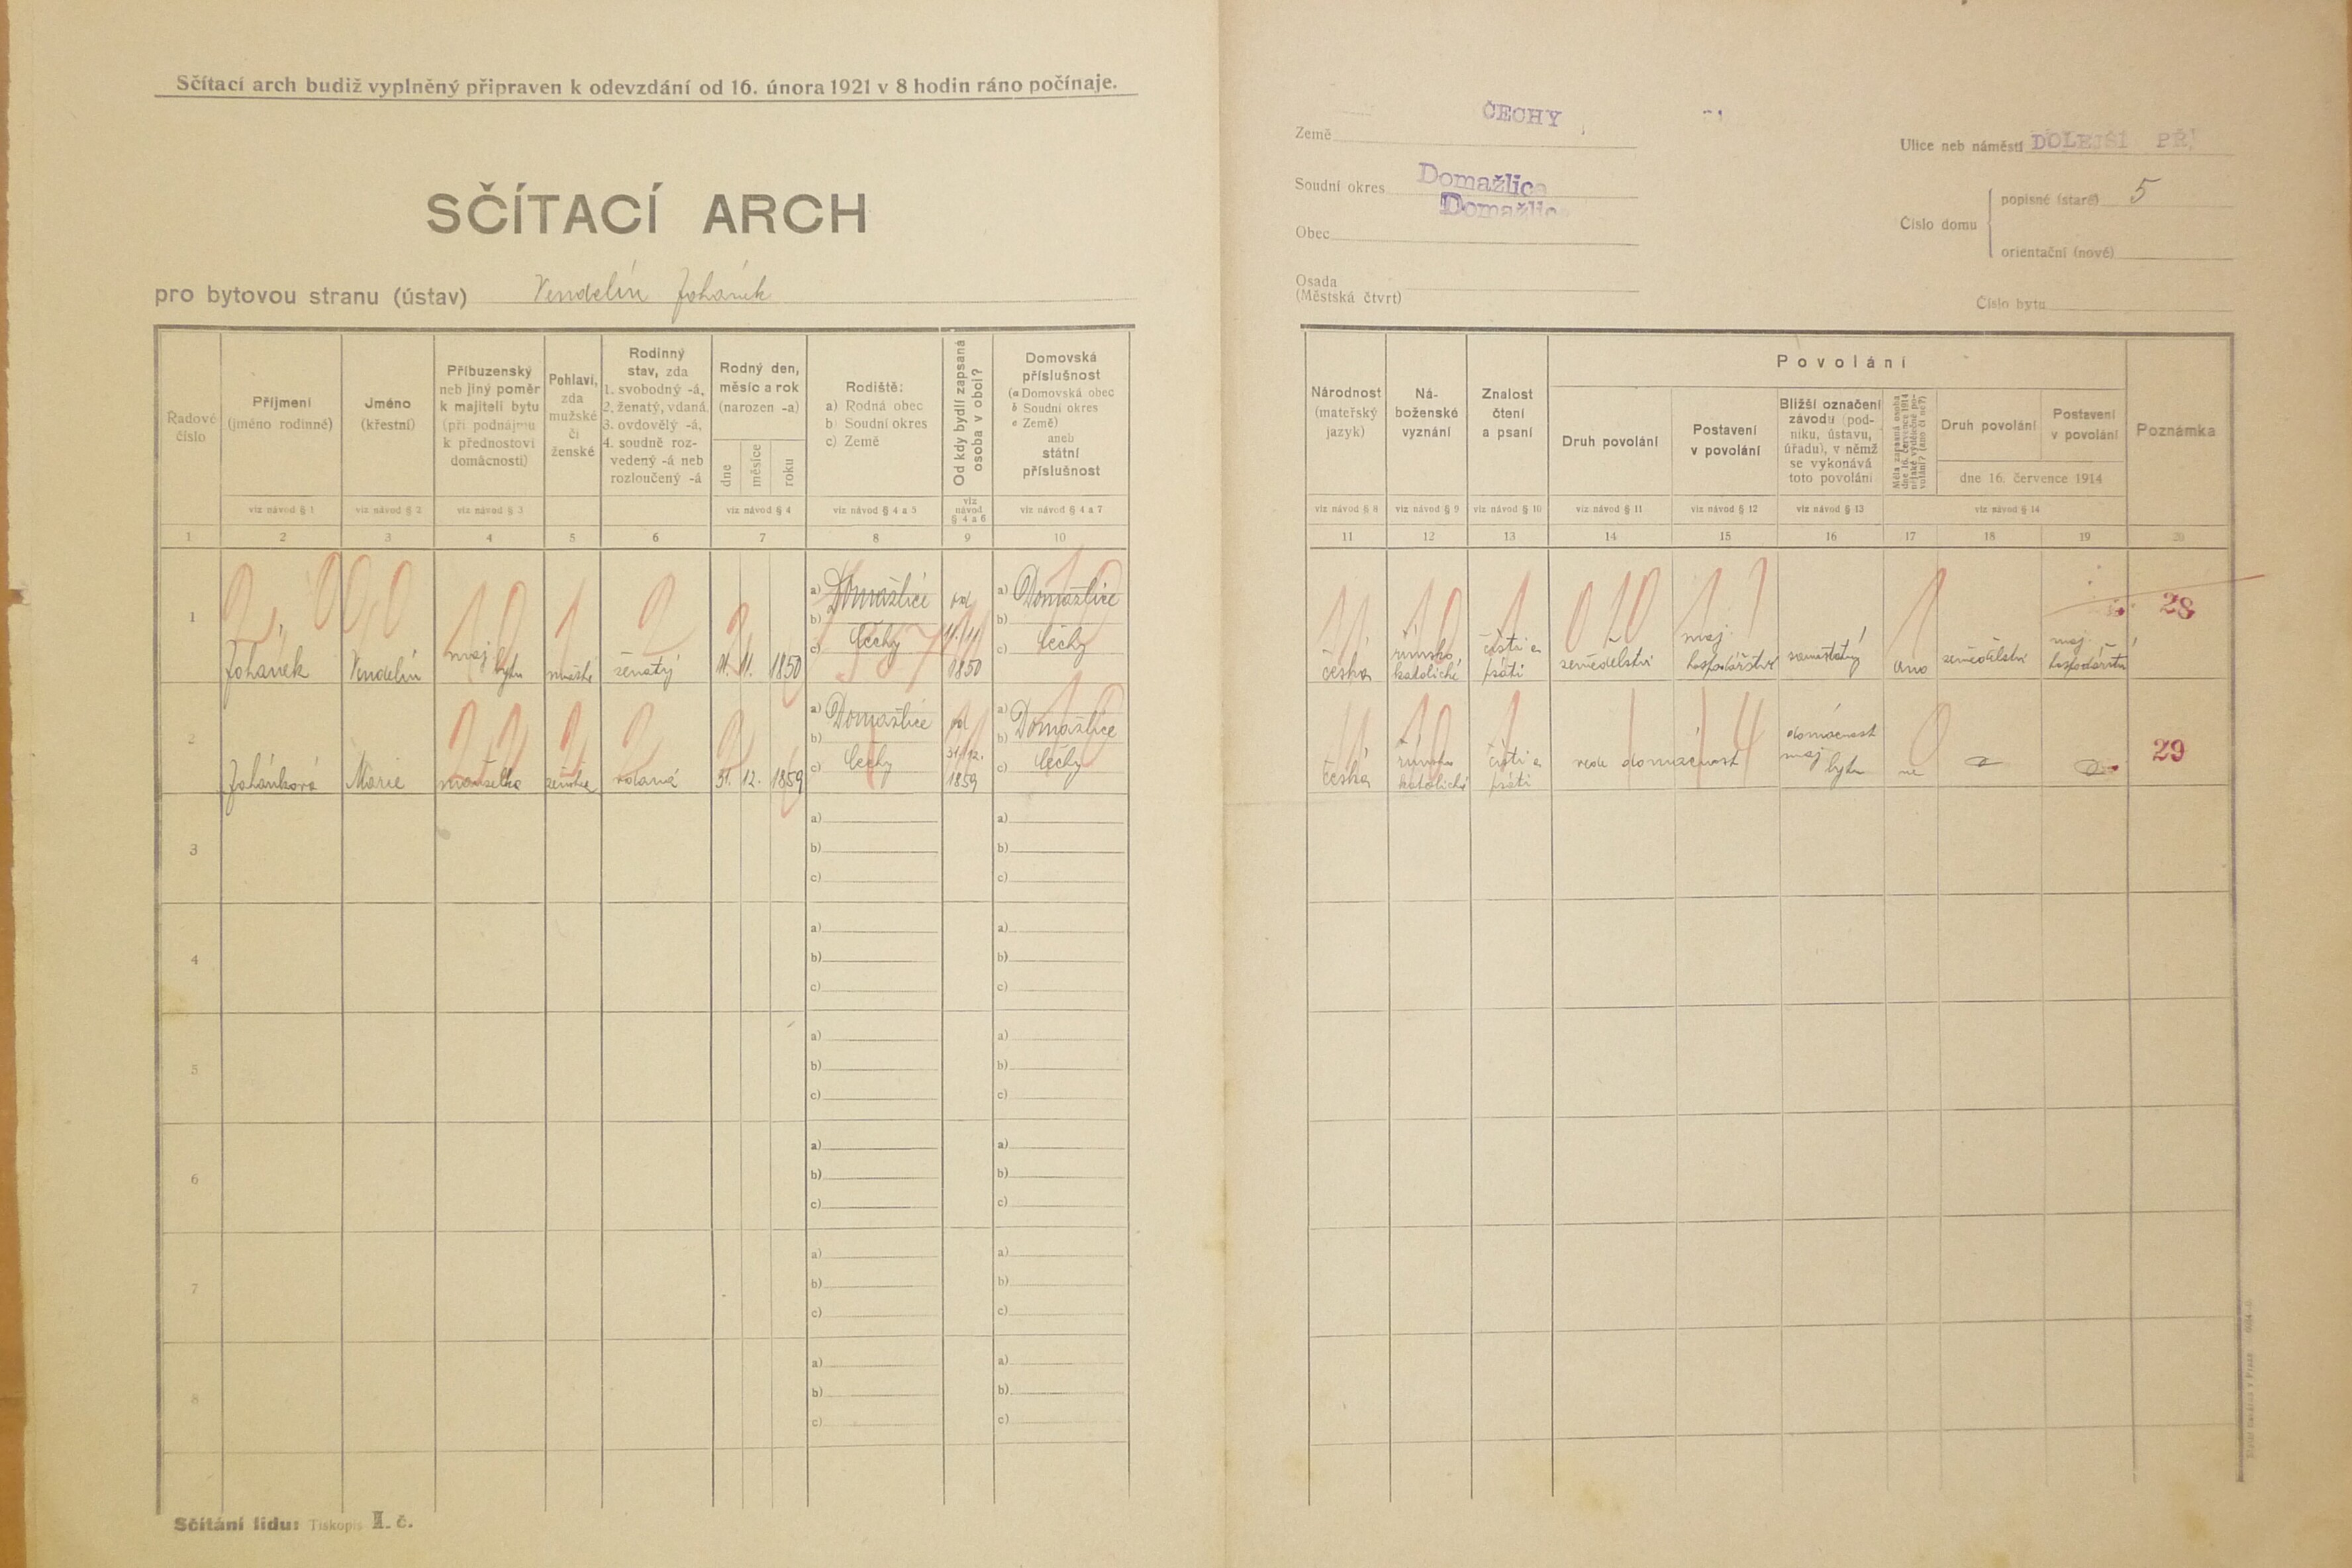 Sčítací arch budiž vyplněný připraven k odevzdání od 16. února 1921 v 8 hodin ráno počínaje.
SČÍTACÍ ARCH
pro bytovou stranu (ústav) Vendelín Johánek
Země ČECHY
Soudní okres Domažlice
Domažlice
Obec
Osada
(Městská čtvrt)
Ulice neb náměstí DOLEJŠÍ PŘ
Číslo domu
popisné (staré) 5
orientační (nové)
Číslo bytu
Řadové
číslo
Příjmení
(jméno rodinné)
Jméno
(křestní)
Příbuzenský
neb jiný poměr
k majiteli bytu
(při podnájmu
k přednostovi
domácnosti)
Pohlaví,
zda
mužské
či
ženské
Rodinný
stav, zda
1. svobodný -á,
2. ženatý, vdaná,
3. ovdovělý -á,
4. soudně roz-
vedený -á neb
rozloučený -á
Rodný den,
měsíc a rok
(narozen -a)
dne
měsíce
roku
Rodiště:
a) Rodná obec
b) Soudní okres
c) Země
Od kdy bydlí zapsaná
osoba v obci?
Domovská
příslušnost
(a Domovská obec
b Soudní okres
c Země)
aneb
státní
příslušnost
viz návod § 1
viz návod § 2
viz návod § 3
viz návod § 4
viz návod § 4 a 5
viz
návod
§ 4 a 6
viz návod § 4 a 7
1 2 3 4 5 6 7 8 9 10
Národnost
(mateřský
jazyk)
Ná-
boženské
vyznání
Znalost
čtení
a psaní
Povolání
Druh povolání
Postavení
v povolání
Bližší označení
závodu (pod-
niku, ústavu,
úřadu), v němž
se vykonává
toto povolání
Měla zapsaná osoba
dne 16. července 1914
nějaké výdělečné po-
volání? (ano či ne?)
Druh povolání
Postavení
v povolání
dne 16. července 1914
Poznámka
viz návod § 8
viz návod § 9
viz návod § 10
viz návod § 11
viz návod § 12
viz návod § 13
viz návod § 14
11 12 13 14 15 16 17 18 19 20
1
Johánek
Vendelín
maj. bytu
mužské
ženatý
11. 11. 1850
a) Domažlice
b)
c) Čechy
od
11./11
1850
a) Domažlice
b)
c) Čechy
česká
římsko
katolické
čísti a
psáti
zemědělství
maj.
hospodářství
samostatný
ano
zemědělství
maj.
hospodářství
28
2
Johánková
Marie
manželka
ženské
vdaná
31. 12. 1859
a) Domažlice
b)
c) Čechy
od
31./12.
1859
a) Domažlice
b)
c) Čechy
česká
římsko
katolické
čísti a
psáti
vede domácnost
domácnost
maj. bytu
ne
29
3
a)
b)
c)
a)
b)
c)
4
a)
b)
c)
a)
b)
c)
5
a)
b)
c)
a)
b)
c)
6
a)
b)
c)
a)
b)
c)
7
a)
b)
c)
a)
b)
c)
8
a)
b)
c)
a)
b)
c)
Sčítání lidu: Tiskopis II. č.